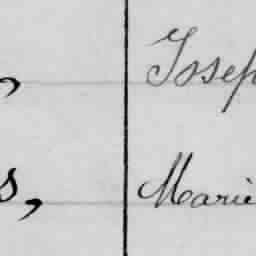 , Josep
s, Marie